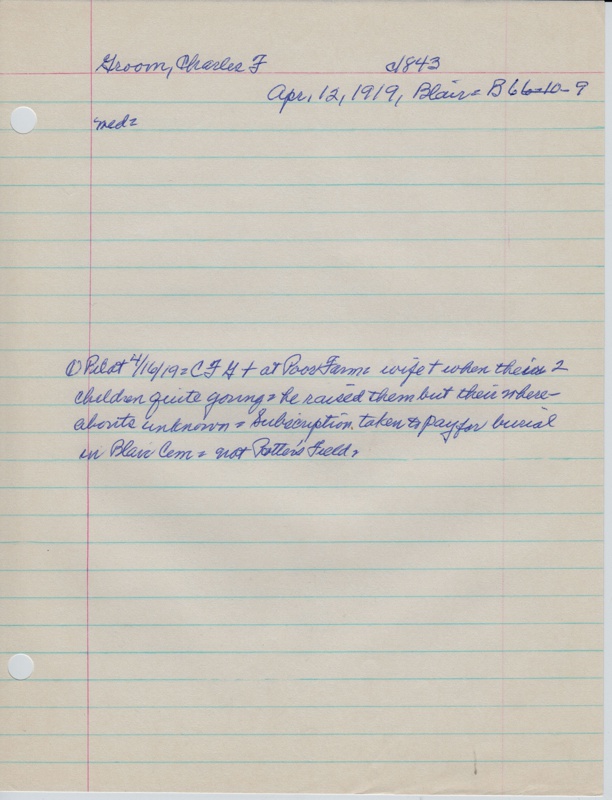 Groom, Charles F c1843
Apr, 12, 1919, Blair = B66=10-9
med=
① Pilot 4/16/19 = C F G + at Poor Farm = wife + when their 2
children quite young = he raised them but their where-
abouts unknown = Subscription taken to pay for burial
in Blair Cem = not Potter's Field.